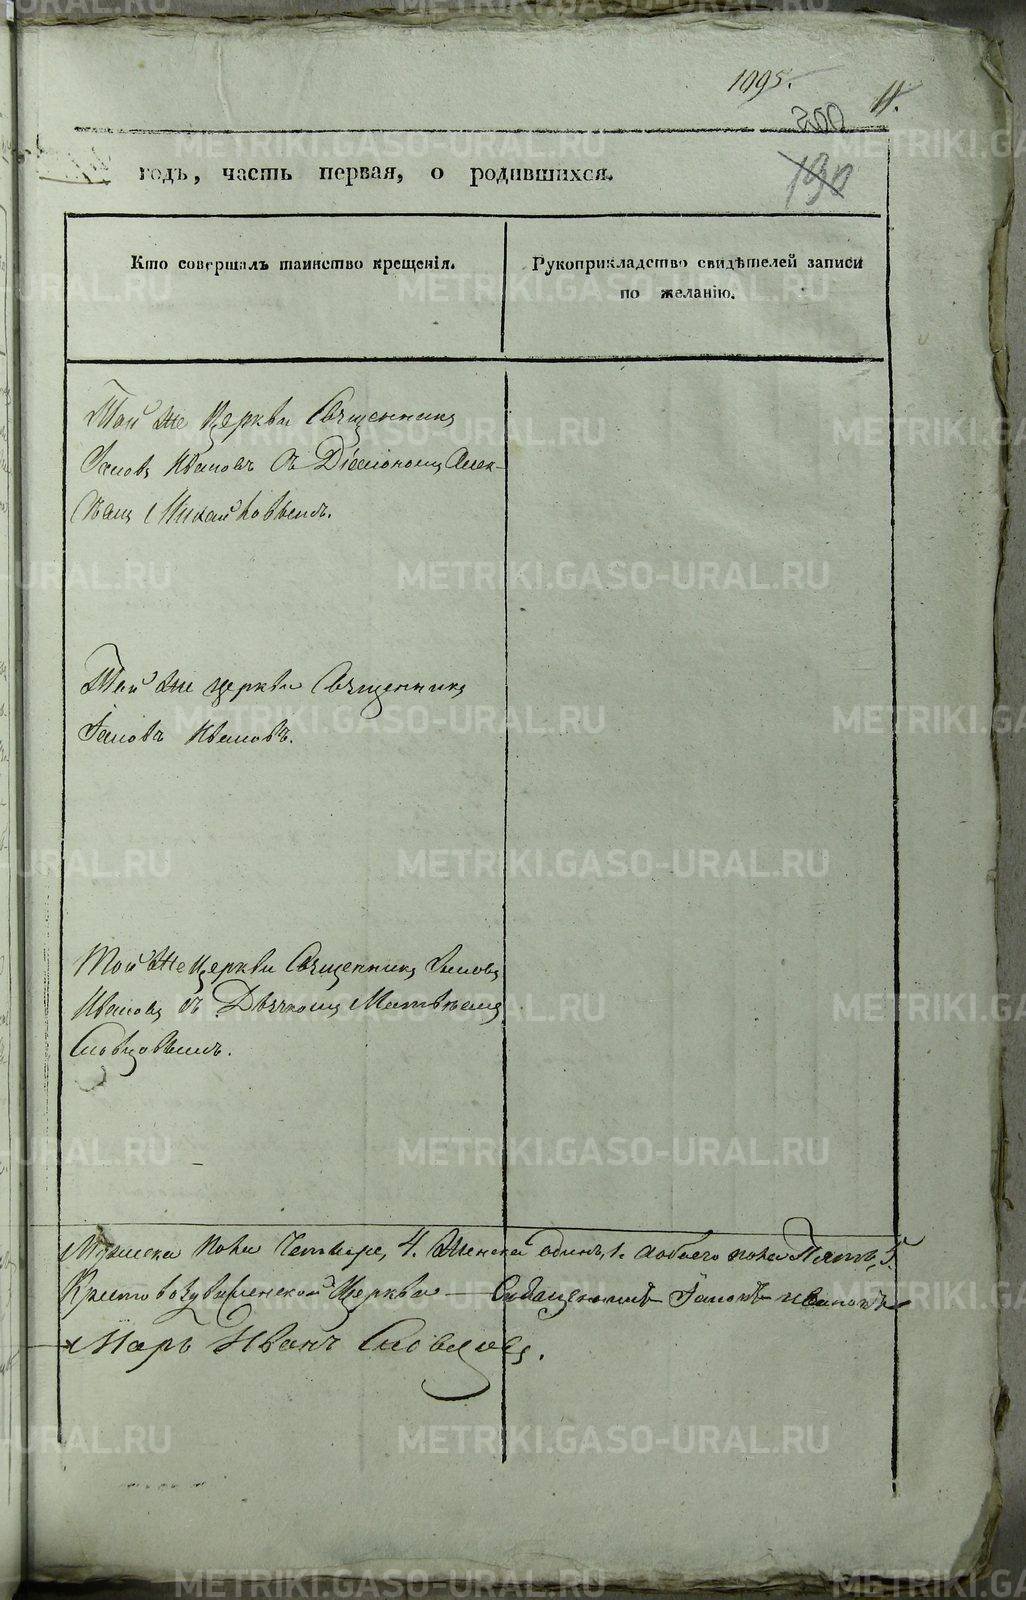 1095.
11.
200
190
годъ, часть первая, о родившихся.
Кто совершалъ таинство крещенія.
Рукоприкладство свидѣтелей записи
по желанію.
Той же Церкви Священникъ
Іаковъ Ивановъ съ Діакономъ Алек-
Михайловымъ.
Той же церкви Священникъ
Іаковъ Ивановъ.
Той же Церкви Священникъ Іаковъ
Ивановъ съ Дьячкомъ Матвѣемъ
Словцовымъ.
Мужеска пола Четыре, 4. Женска одинъ, 1. Обоего пола Пять, 5
Крестовоздвиженской Церкви Священникъ Іаковъ Ивановъ
Иванъ Словцовъ.
METRIKI.GASO-URAL.RU